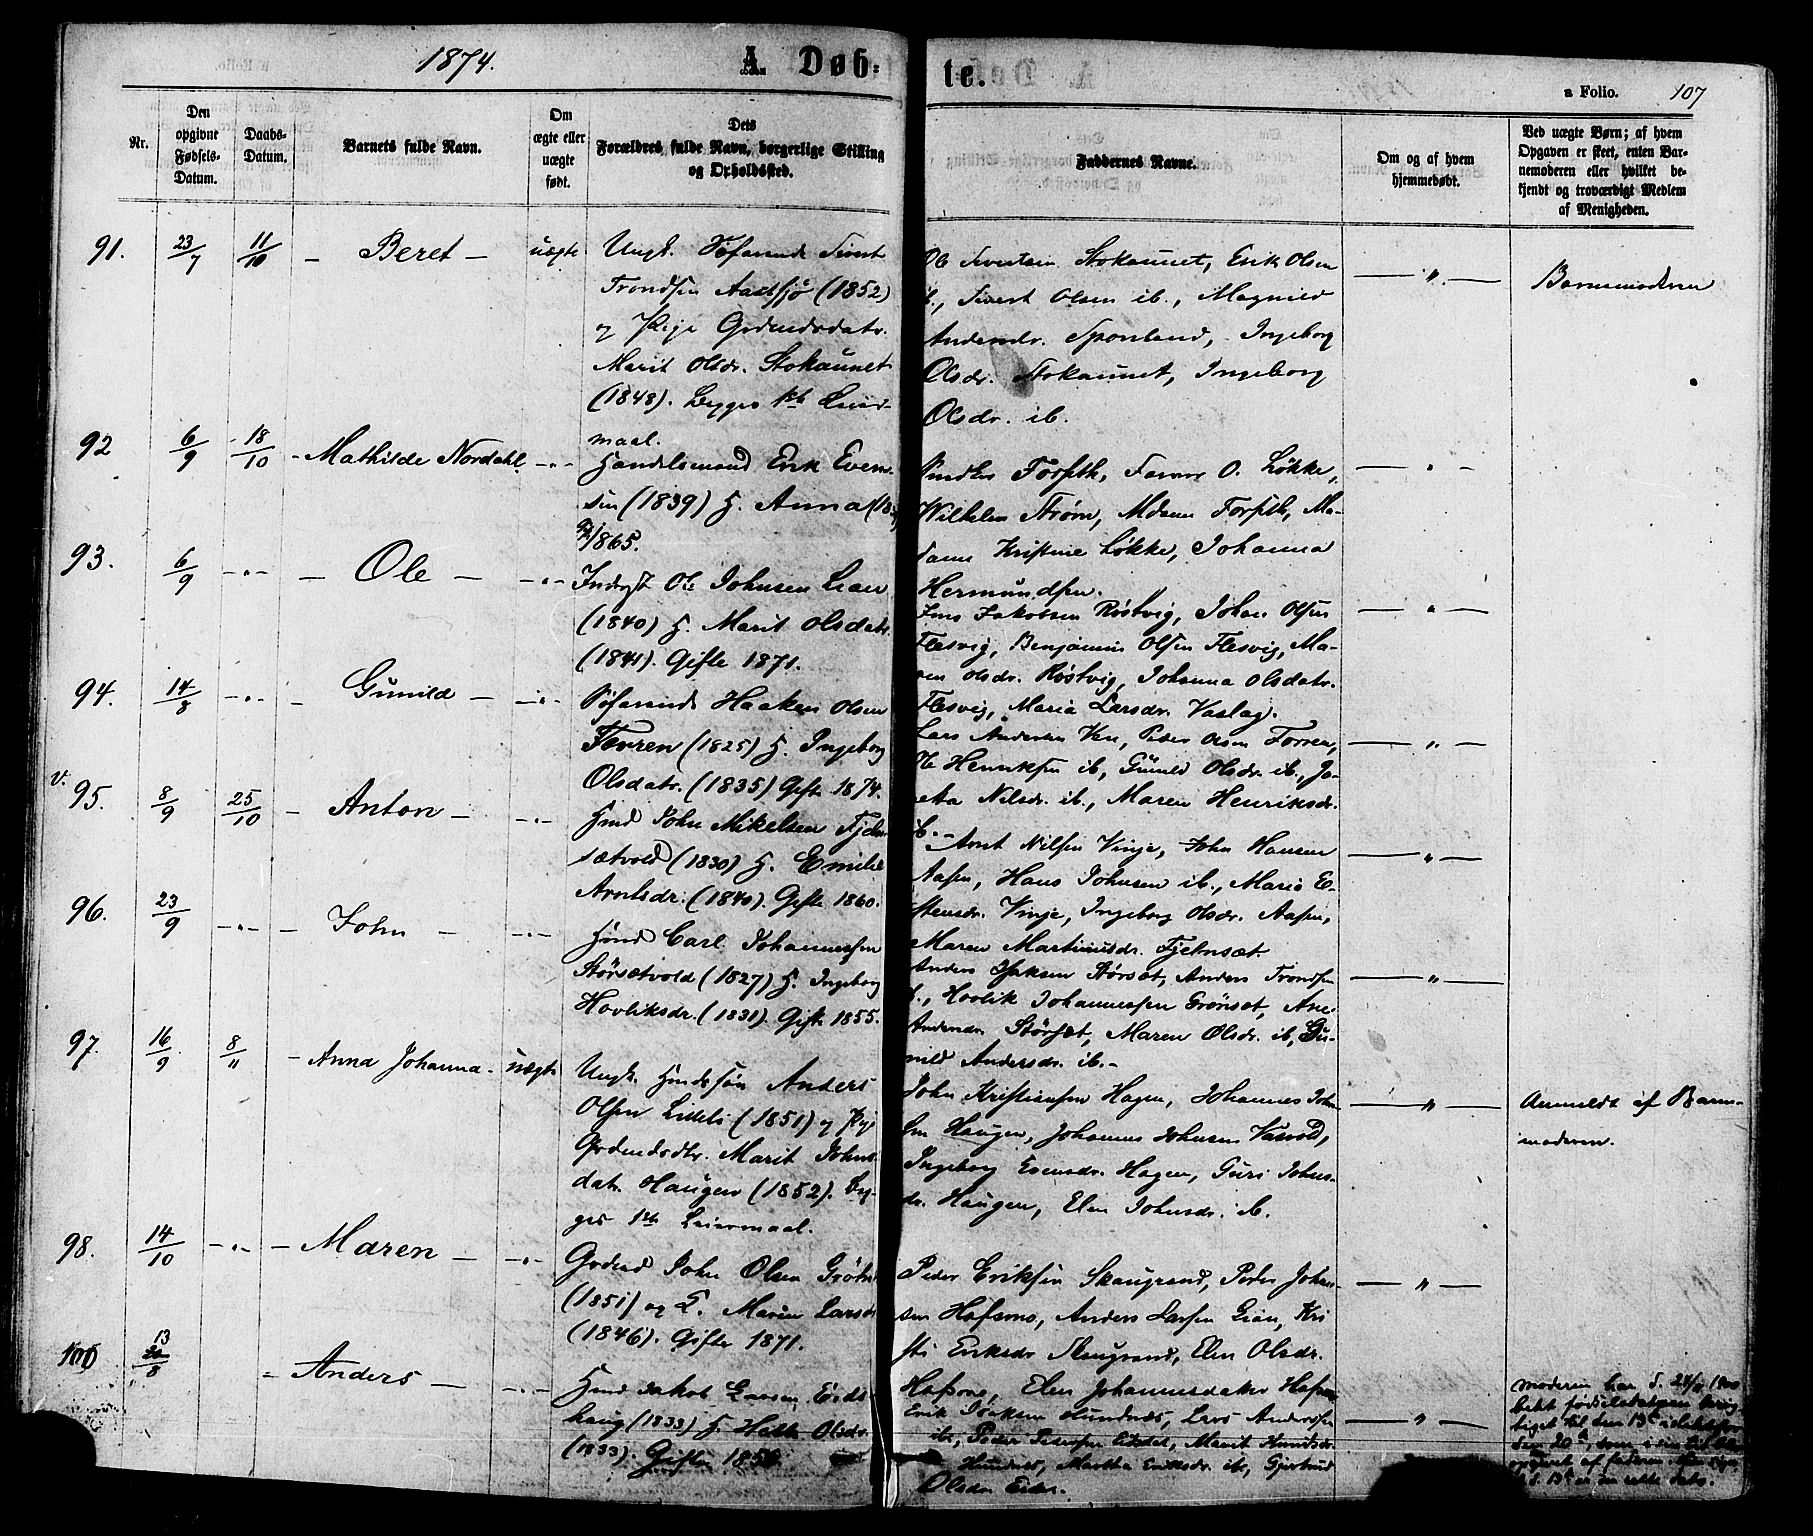 1874.
A. Døb=
te.
a Folio. 107
Nr.
Den opgivne Fødsels-Datum.
Daabs-Datum.
Barnets fulde Navn.
Om ægte eller uægte født.
Dets Forældres fulde Navn, borgerlige Stilling og Opholdssted.
Faddernes Navne.
Om og af hvem hjemmedøbt.
Ved uægte Børn; af hvem Opgaven er skeet, enten Barnemoderen eller hvilket bekjendt og troværdigt Medlem af Menigheden.
91. 23/7 11/10 - Beret - uægte
Ungk. Søfarende Sivert
Trondsen Aastsjø (1852)
og Pige Grdmdsdatr.
Marit Olsdr. Stokaunet
(1848). Begges 1ste Leier-
maal.
Ole Sivertsen Stokaunet, Erik Olsen
ib., Sivert Olsen ib., Magnild
Andersdr. Sponland, Ingeborg
Olsdr. Stokaunet, Ingeborg
Olsdr. ib.
— " —
Barnemoderen
92 6/9 18/10 - Mathilde Nordahl - " -
Handelsmand Erik Even-
sen (1839) H. Anna
1865.
Forseth, O. Løkke,
Wilhelm Strøm, Mdame Forseth, Ma-
dame Kristine Løkke, Johanna
Hermundsen.
— " —
93. 6/9 - " - - Ole - - " -
Indrgst Ole Johnsen Lian
(1840) H. Marit Olsdatr.
(1841). Gifte 1871.
Jens Jakobsen Røstvig, Johan Olsen
Flesvig, Benjamin Olsen Flesvig, Ma-
ren Olsdr. Røstvig, Johanna Olsdatr.
Flesvig, Maria Larsdr. Vaslag.
— " —
94. 14/8 - " - - Gunild - - " -
Søfarende Haaken Olsen
Forren (1825) H. Ingeborg
Olsdatr. (1835) Gifte 1874.
Lars Andersen Ven, Peder Olsen Forren,
Ole Henriksen ib., Gunild Olsdr. ib., Jo-
Nilsdr. ib., Maren Henriksdr.
ib. -
— " —
v. 95. 8/9 25/10 - Anton - - " -
Hmd John Mikelsen Fjeln-
sætvold (1830) H. Emilie
Arntsdr. (1840). Gifte 1860.
Arnt Nilsen Vinje, John Hansen
Aasen, Hans Johnsen ib., Maria E-
stensdr. Vinje, Ingeborg Olsdr. Aasen,
Maren Martinusdr. Fjelnsæt.
— " —
96. 23/9 - " - - John - - " -
Hmd Carl Johannessen
Størsætvold (1827) H. Ingeborg
Hovliksdr. (1831). Gifte 1855.
Anders Isaksen Størsæt, Anders Trondsen
ib., Hovlik Johannessen Grønsæt, Ane
Andersdr. Størsæt, Maren Olsdr. ib., Gu-
nild Andersdr. ib. -
— " —
97. 16/9 8/11 - Anna Johanna - uægte
Ungk. Hmdssøn Anders
Olsen Lilleli (1851) og Pige
Grdmdsdtr. Marit Johns-
datr. Haugen (1852). Beg-
ges 1ste Leiermaal.
John Kristiansen Hagen, Johannes John-
sen Haugen, Johannes Johnsen Vasvold,
Ingeborg Evensdr. Hagen, Guri Johns-
dr. Haugen, Elen Johnsdr. ib.
— " —
Anmeldt af Barne-
moderen.
98. 14/10 - " - - Maren - - " -
Grdmd John Olsen
(1851) og H. Maren Larsdr
(1846). Gifte 1871.
Peder Eriksen Skaugrand, Peder Johan-
sen Hafsmo, Anders Larsen Lian, Kri
sti Eriksdr Skaugrand, Elen Olsdr.
Hafsmo, Elen Johannesdatter Hafsmo
— " —
100 13/8 - Anders - - " -
Hmd Jakob Larsen Eids-
haug (1833) H. Olsdr.
(1833). Gifte
Erik Isaksen Hundnes, Lars Anderssen
ib., Peder Petersen, Marit Knudsdr.
Hundnes, Martha Eriksdr. ib., Gjertrud
Olsdr
— " —
Moderen har d.
fødselsdatoen
til den 13de
20de, som i sin tid
opgivet af faderen
d. 13de er den rette dato.